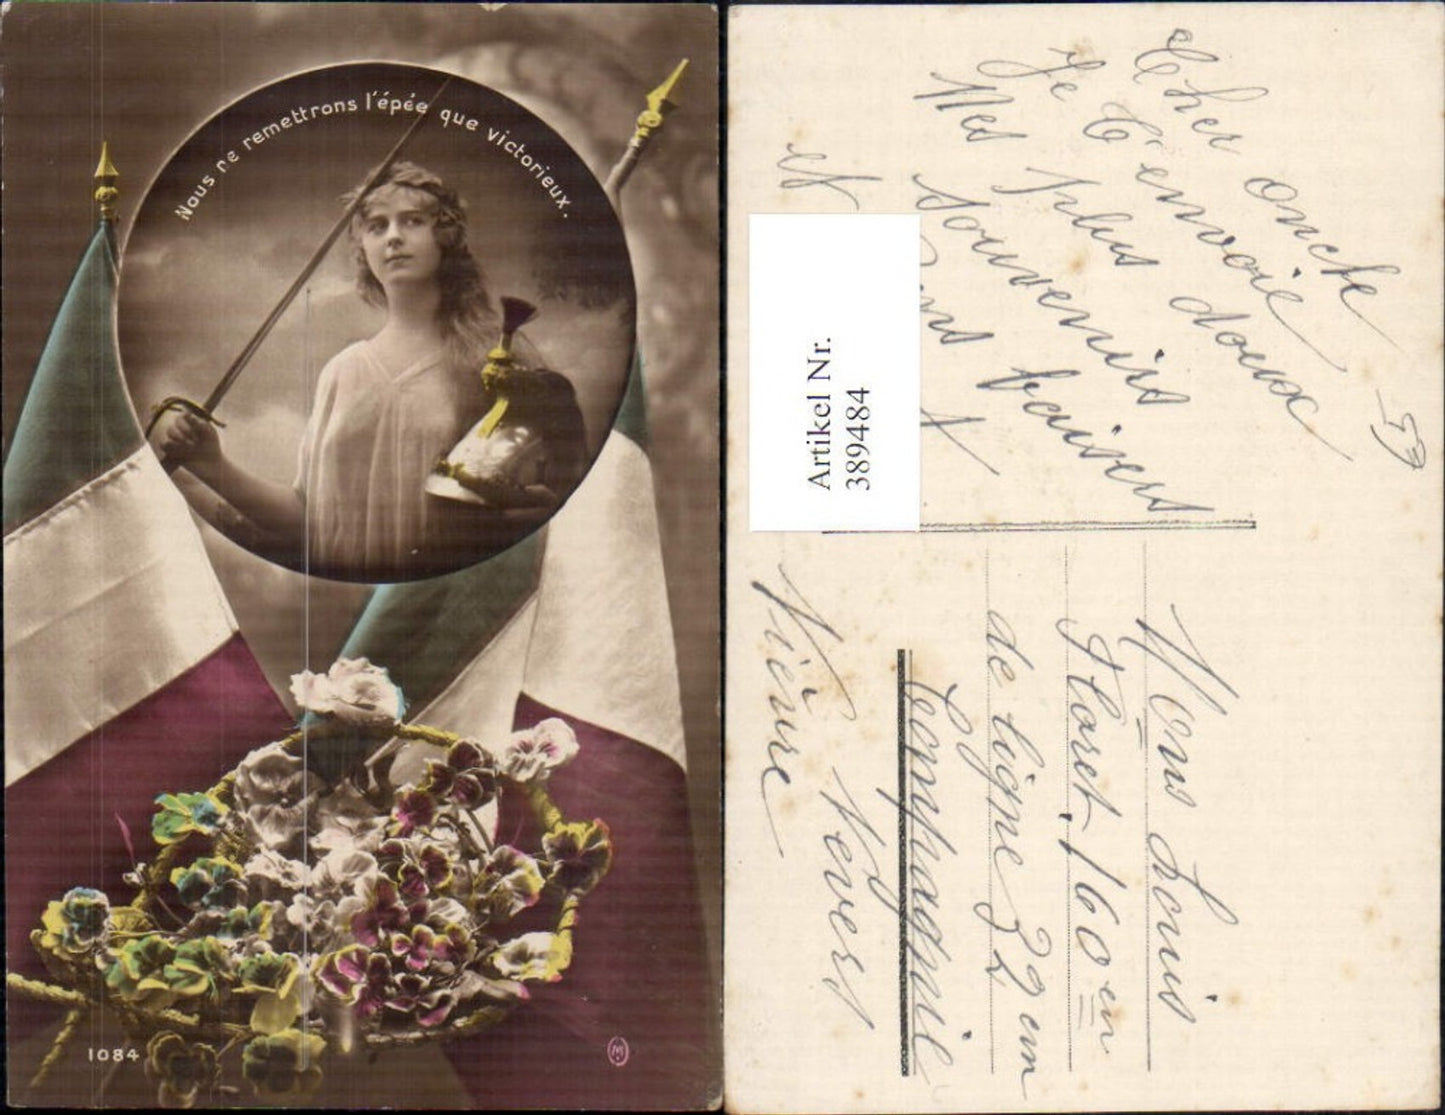 Nous ne remettrons l'épée que victorieux.
1084
M
Cher oncle
Je t'envoie
Mes plus doux
souvenirs
et baisers
53
Artikel Nr.
389484
Mons Louis
Floret, 160 en
de ligne 32 em
Compagnie
Nevers
Nièvre